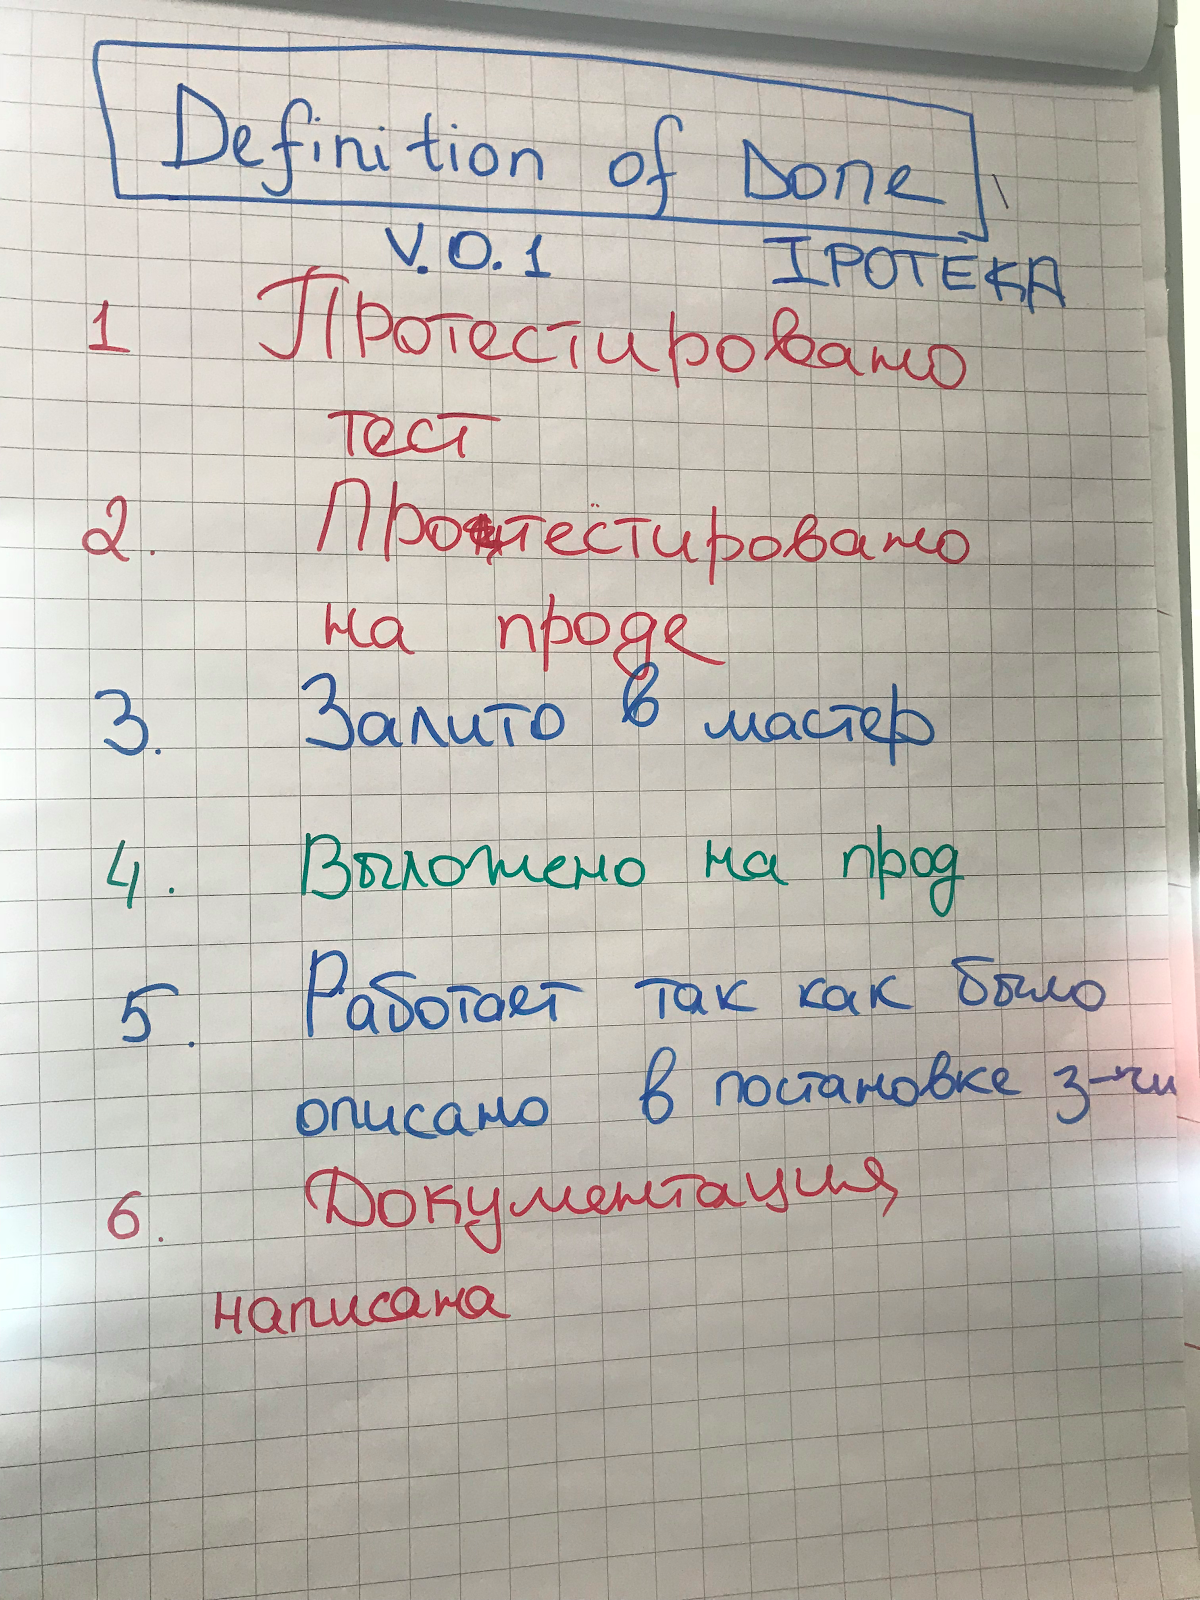 Definition of Done
V.0.1 IPOTEKA
1 Протестировано
тест
2. Протестировано
на проде
3. Залито в мастер
4. Выложено на прод
5. Работает так как было
описано в постановке з-чи
6. Документация
написана